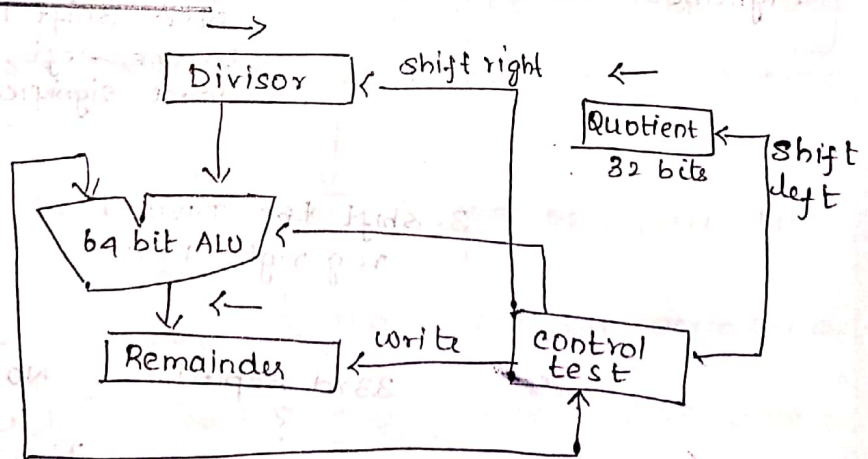 Divisor
shift right
Quotient
32 bits
Shift
left
64 bit ALU
Remainder
write
control
test